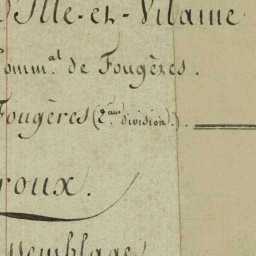 d'Ille-et-Vilaine
Comm.al de Fougères.
Fougères (2.ème division).
roux.
ssemblage